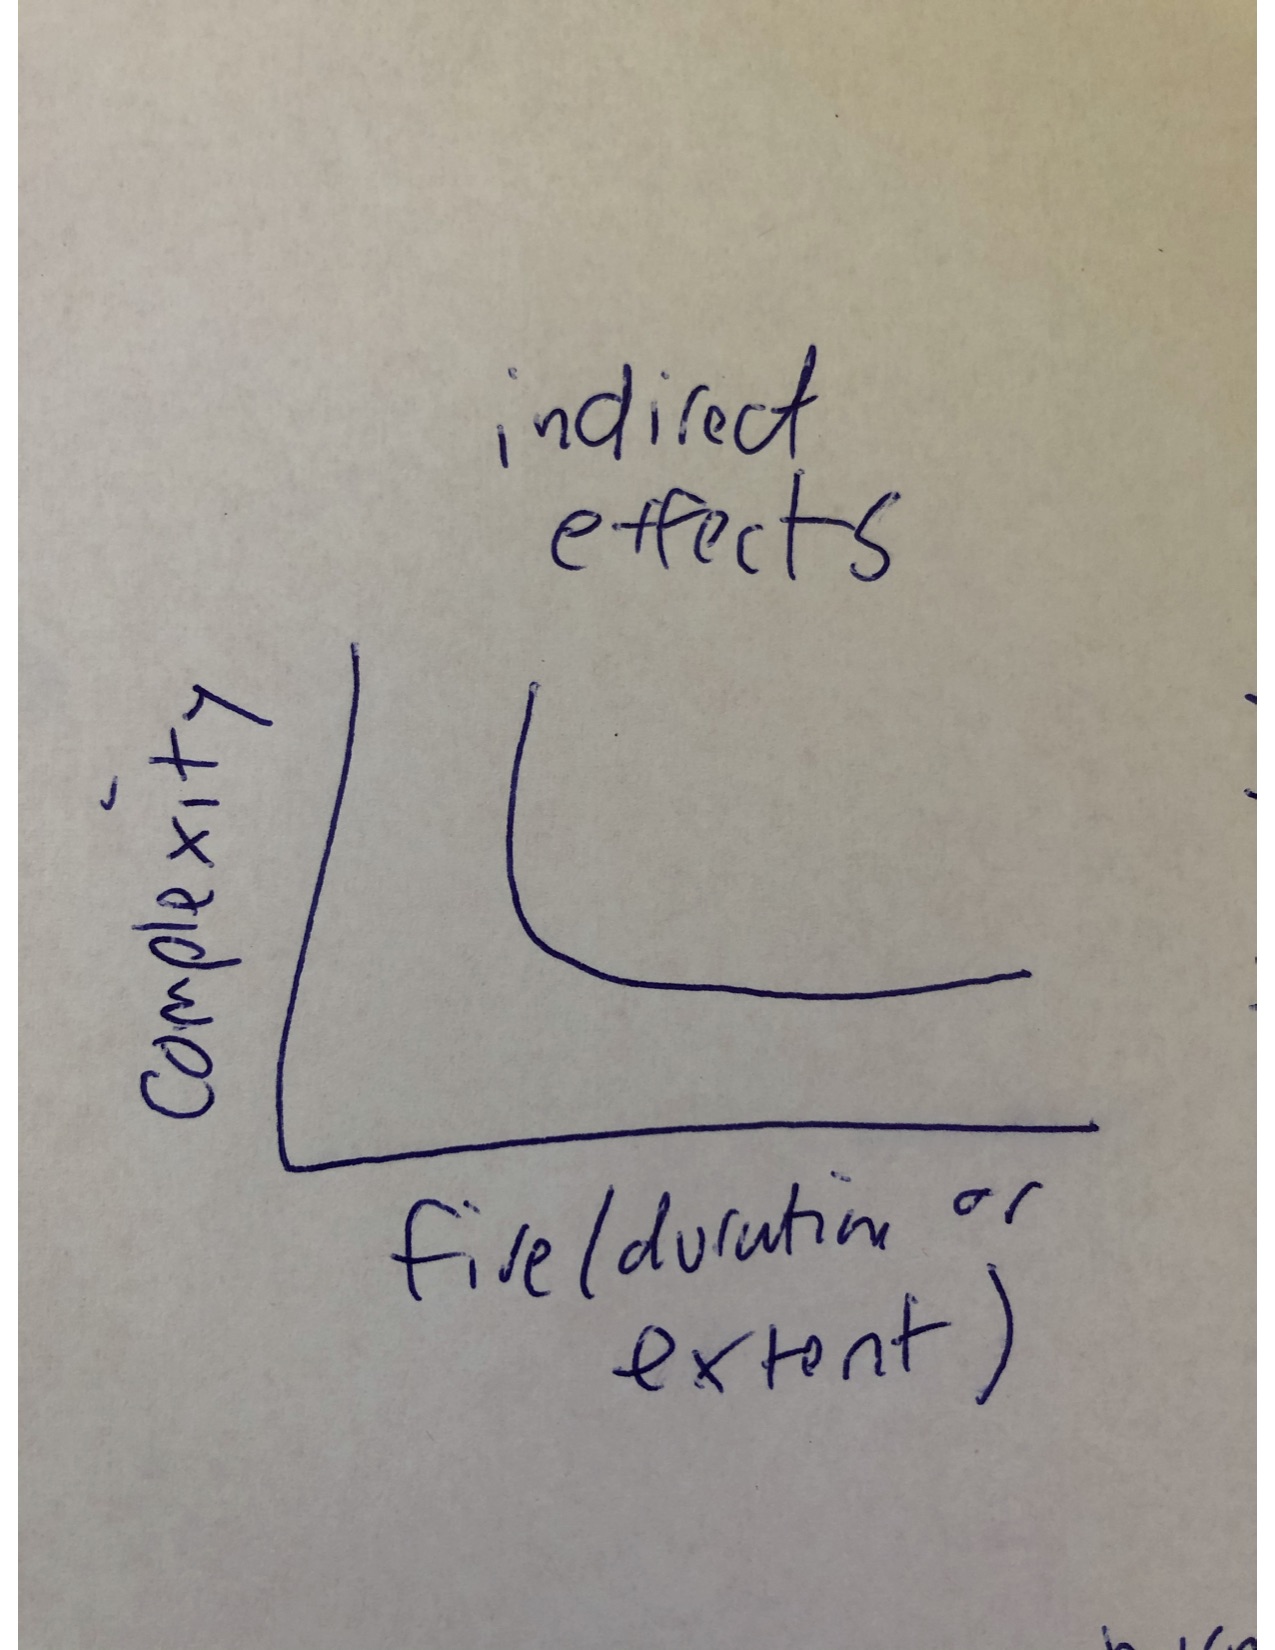 indirect
effects
Complexity
fire (duration or
extent)